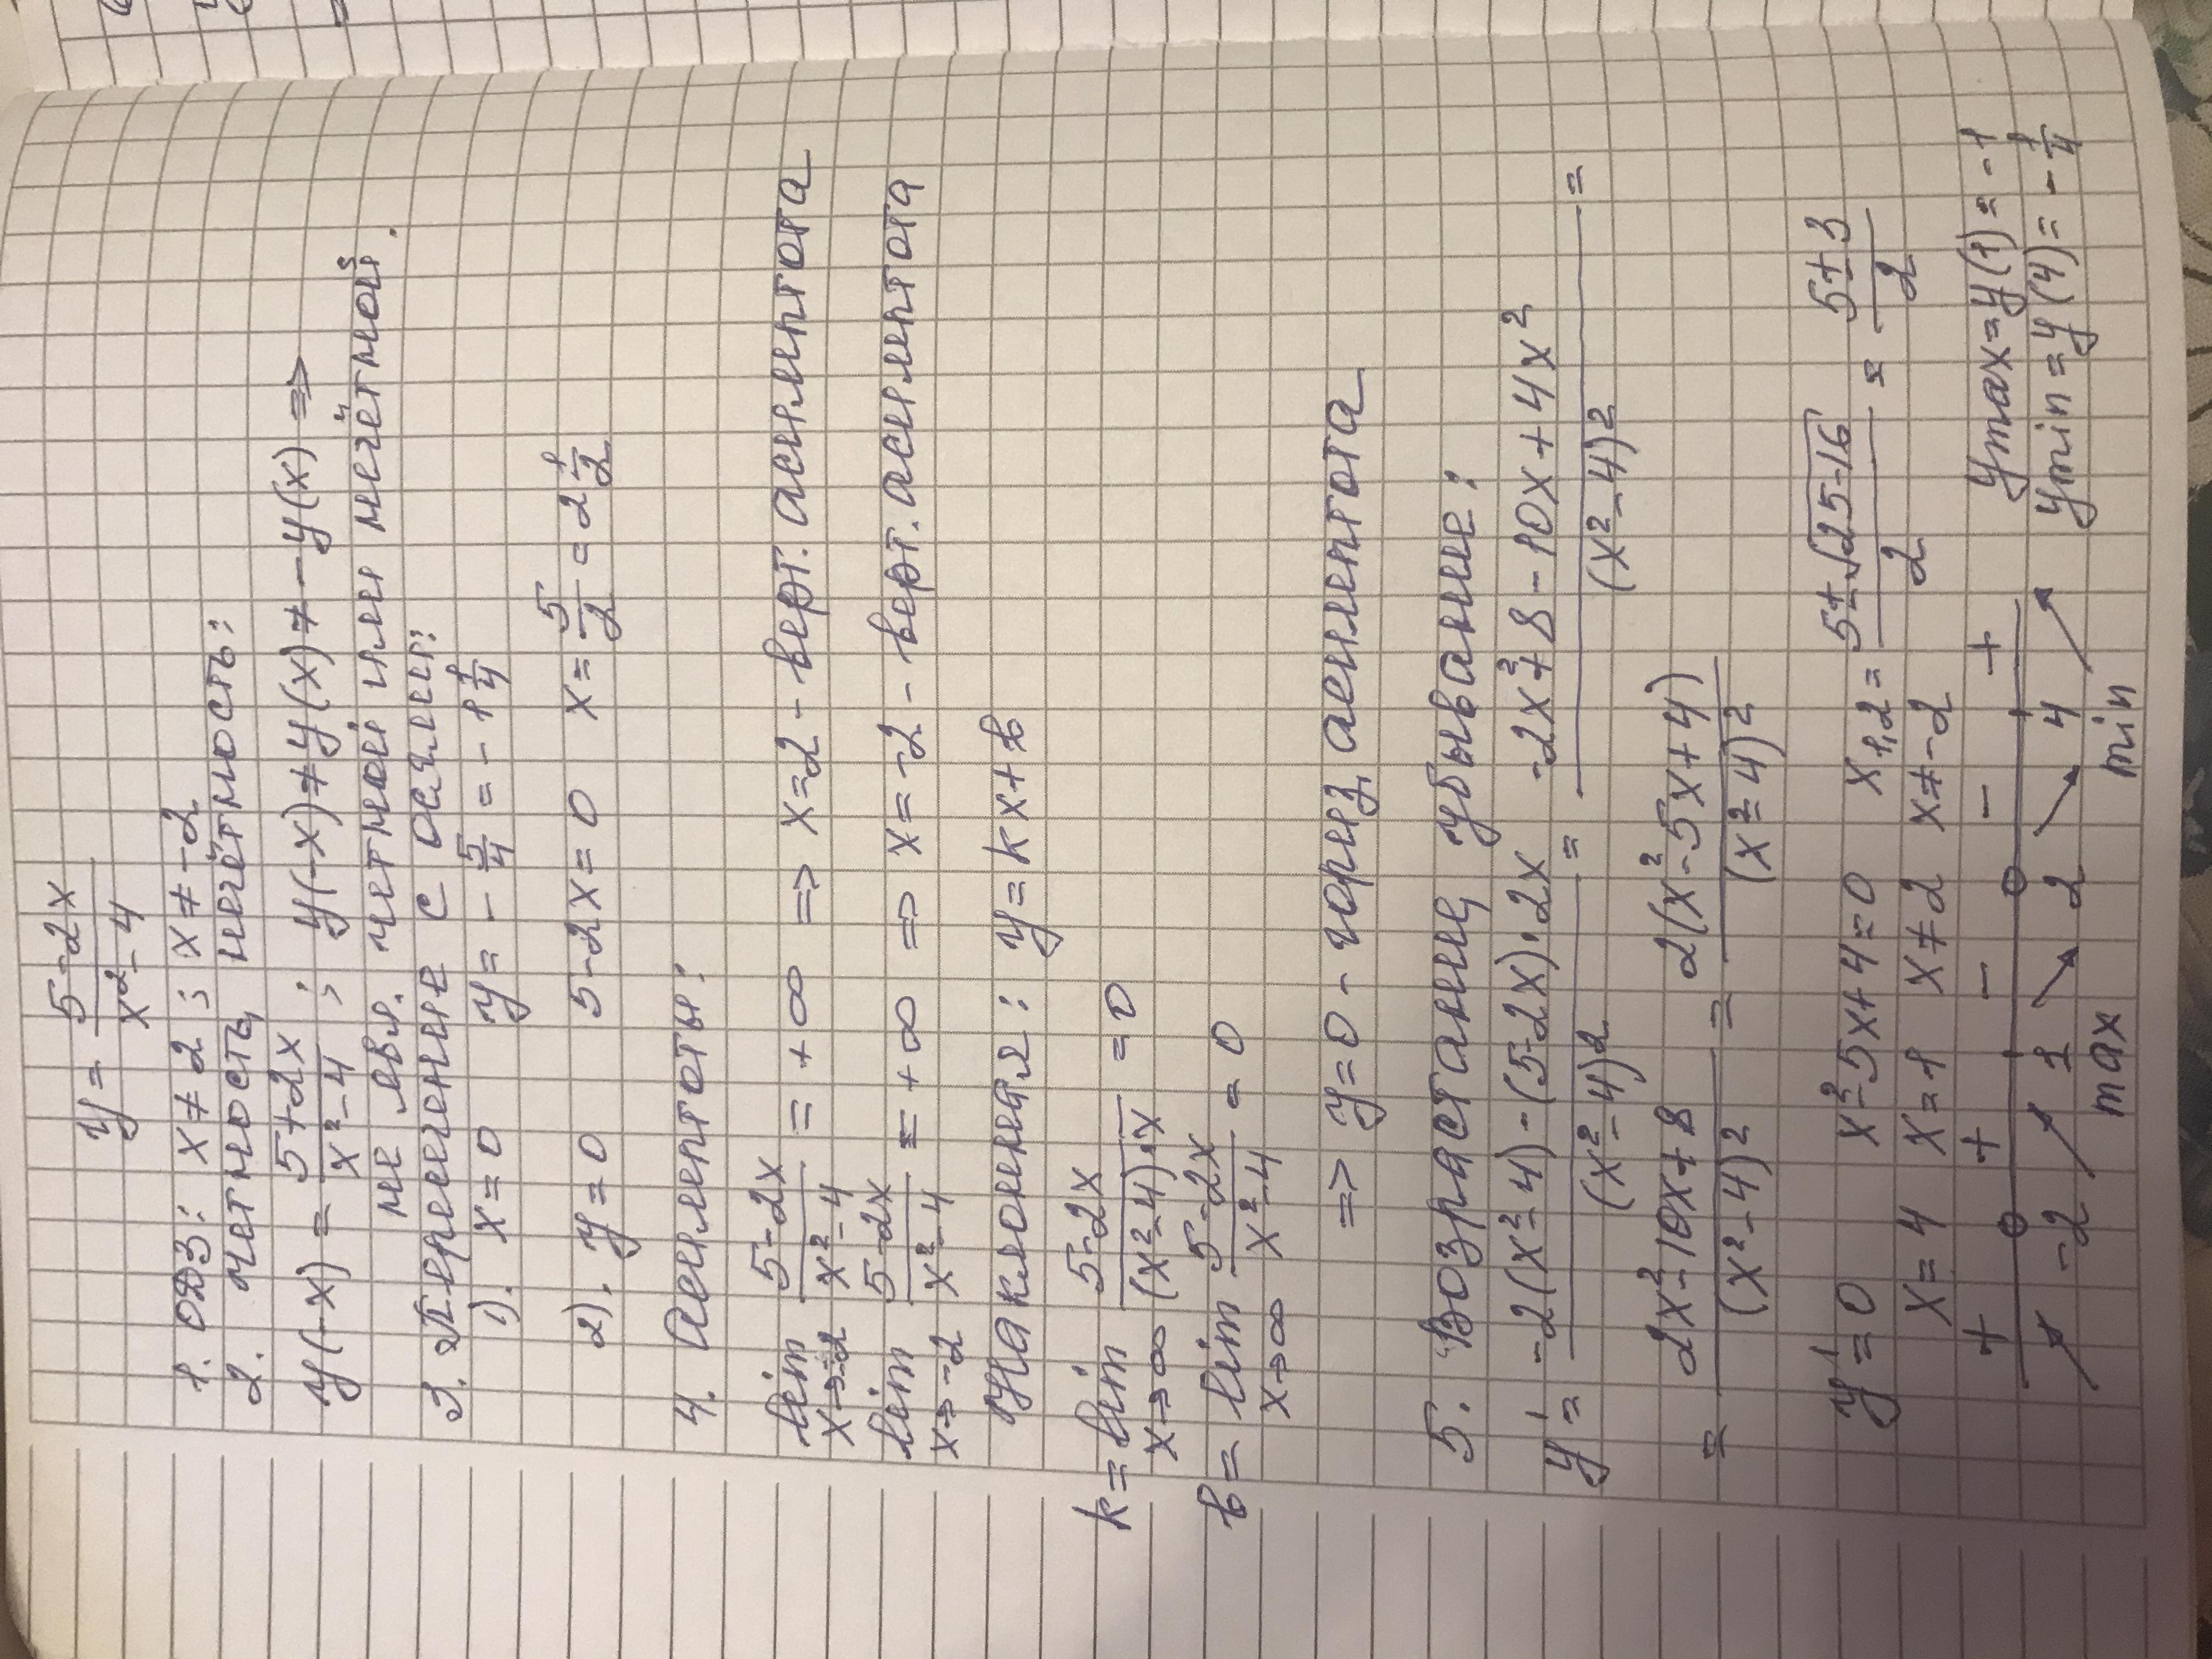 y = (5-2x)/(x²-4)
1. ОДЗ: x ≠ 2 ; x ≠ -2
2. Четность, нечётность:
y(-x) = (5+2x)/(x²-4) ; y(-x) ≠ y(x) ≠ -y(x) =>
не явл. четной или нечётной.
3. Пересечение с осями:
1). x=0 y= -5/4 = -1 1/4
2). y=0 5-2x=0 x= 5/2 = 2 1/2
4. Асимптоты:
lim x→2 (5-2x)/(x²-4) = +∞ => x=2 - верт. асимптота
lim x→-2 (5-2x)/(x²-4) = +∞ => x=-2 - верт. асимптота
Наклонная: y=kx+b
k= lim x→∞ (5-2x)/((x²-4)·x) =0
b= lim x→∞ (5-2x)/(x²-4) = 0
=> y=0 - гориз. асимптота
5. Возрастание, убывание:
y' = (-2(x²-4)-(5-2x)·2x)/(x²-4)² = (-2x²+8-10x+4x²)/(x²-4)² =
= (2x²-10x+8)/(x²-4)² = 2(x²-5x+4)/(x²-4)²
y'=0 x²-5x+4=0 x1,2 = (5±√25-16)/2 = (5±3)/2
x=4 x=1 x≠2 x≠-2
+ + - - + ymax=y(1)=-1
-2 1 2 4 ymin=y(4)=-1/4
max min